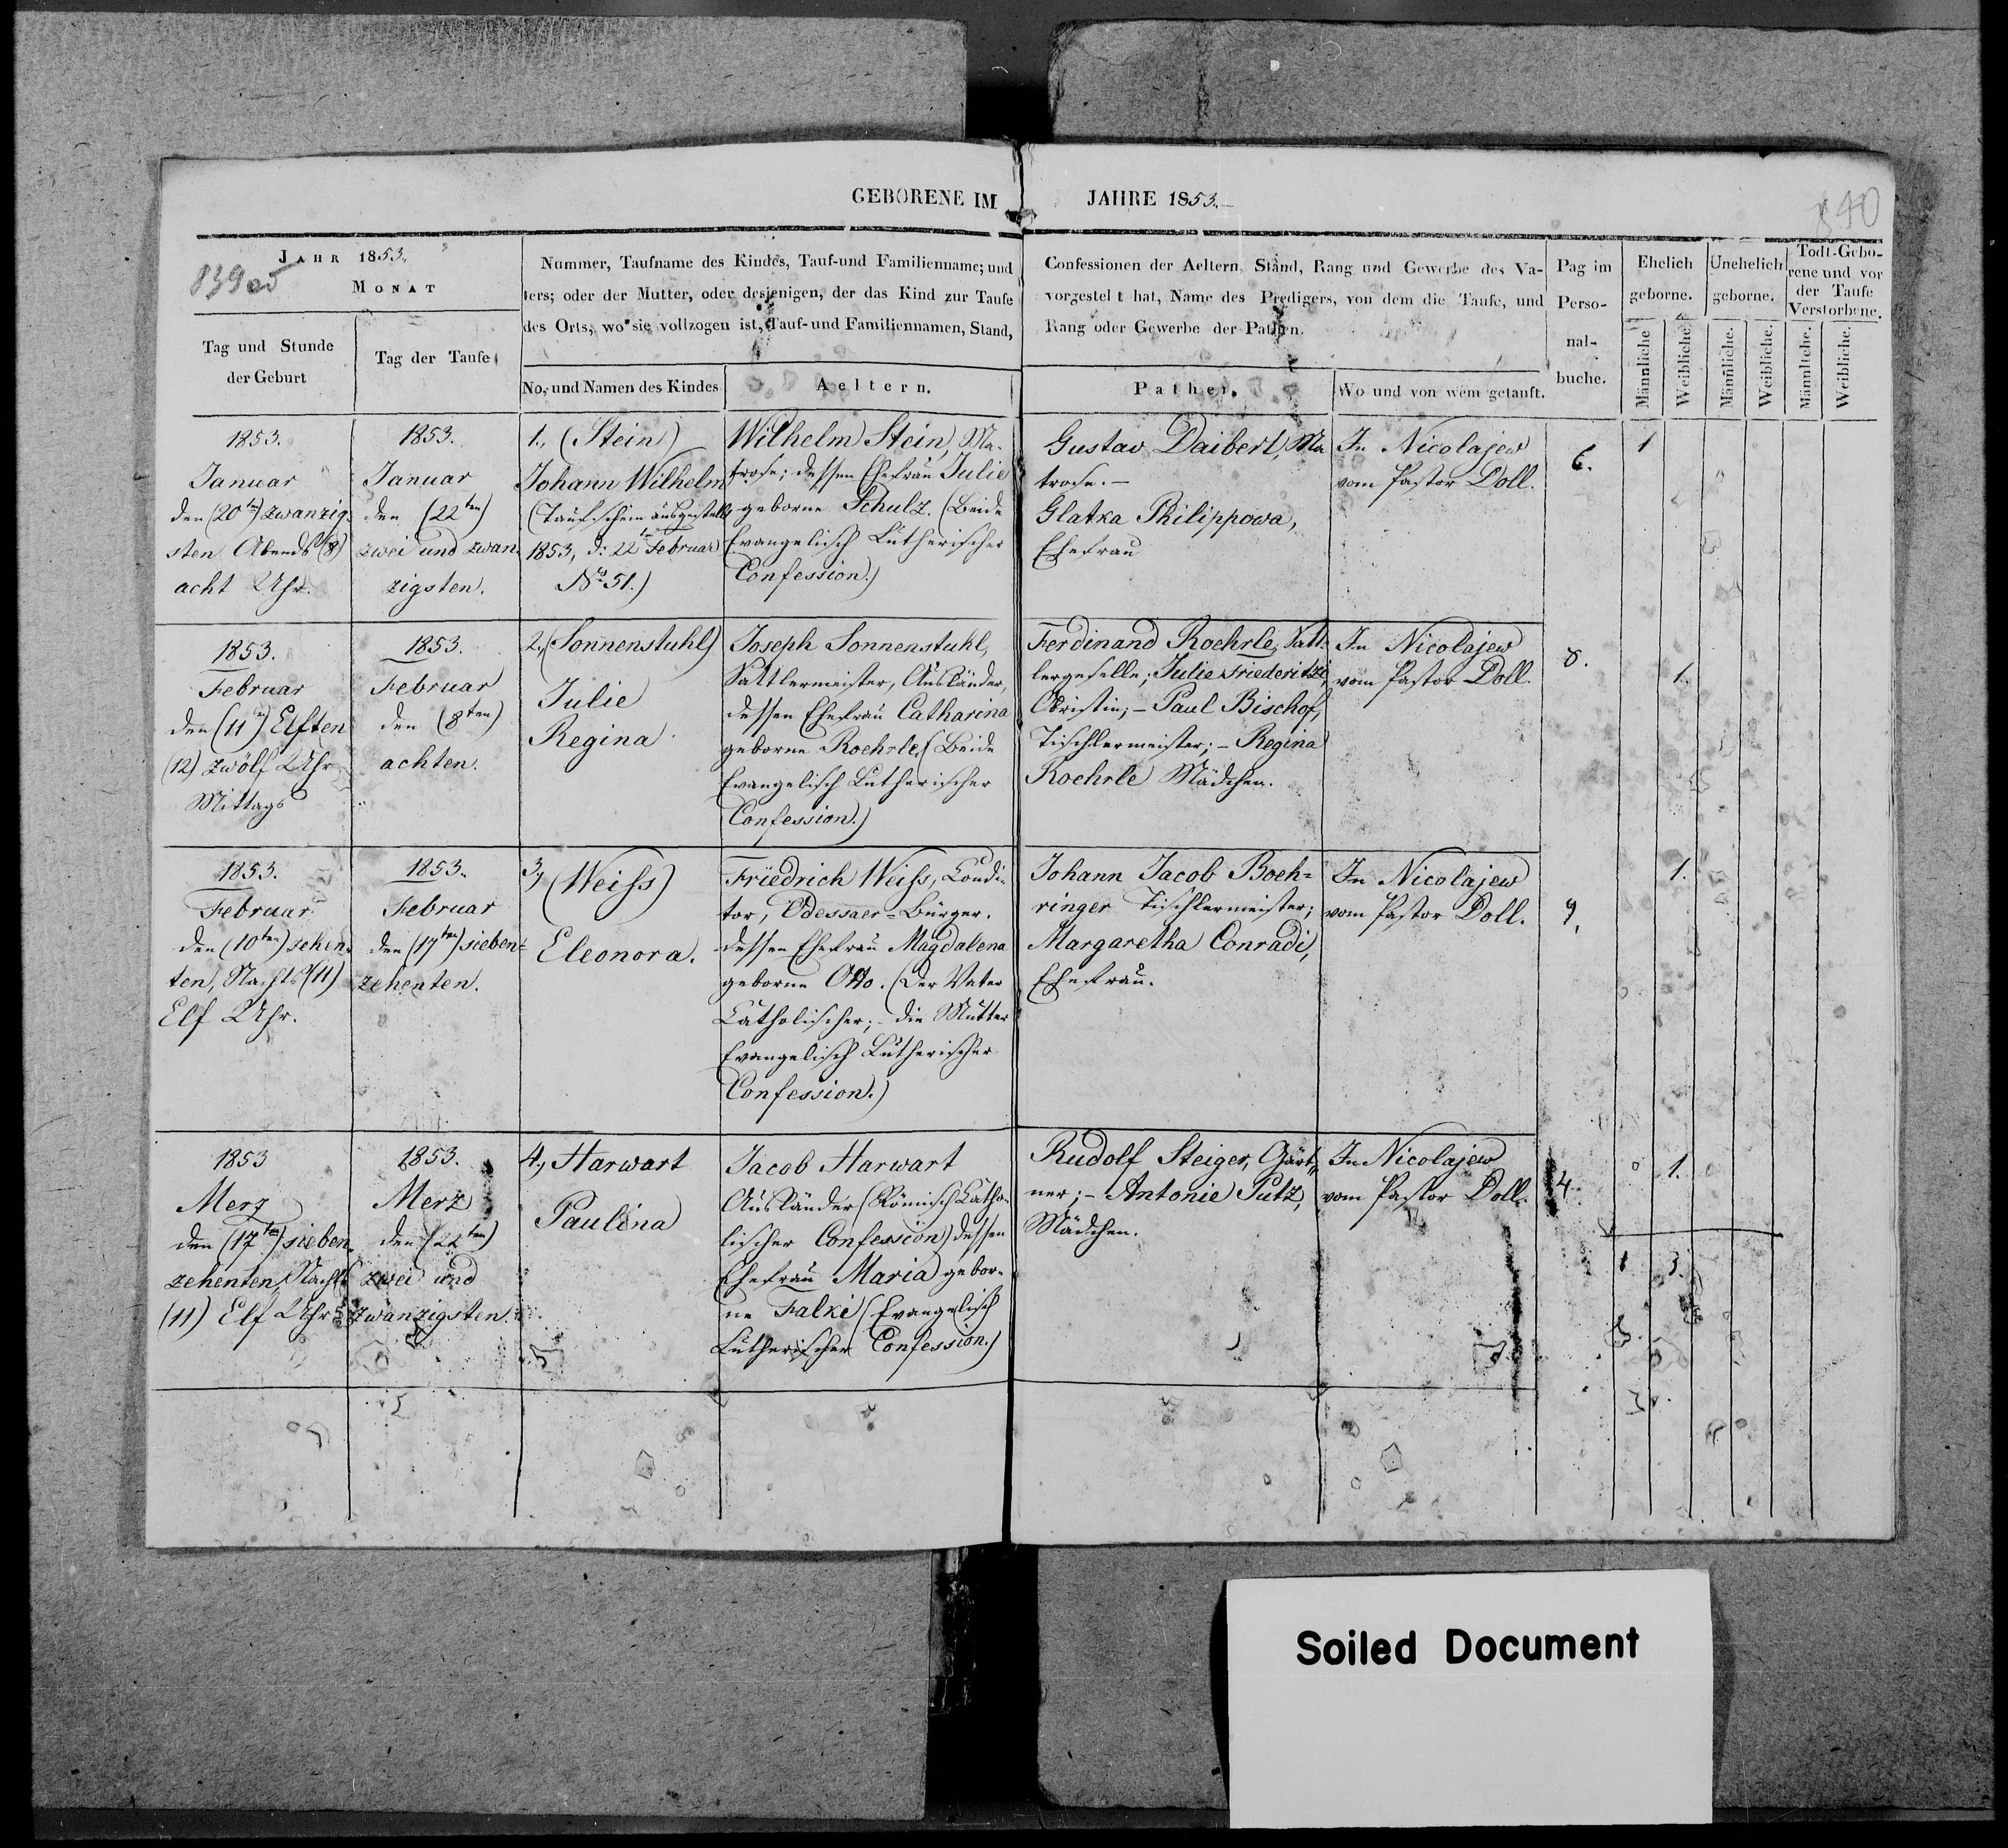 GEBORENE IM JAHRE 1853.
840
JAHR 1853.
839
MONAT
Tag und Stunde
der Geburt
Tag der Taufe
Nummer, Taufname des Kindes, Tauf-und Familienname; und
ters; oder der Mutter, oder desjenigen, der das Kind zur Taufe
des Orts, wo sie vollzogen ist, Tauf-und Familiennamen, Stand,
No, und Namen des Kindes
Aeltern.
Confessionen der Aeltern Stand, Rang und Gewerbe des Va-
vorgestellt hat, Name des Predigers, von dem die Taufe, und
Rang oder Gewerbe der Pathen.
Pathen.
Wo und von wem getauft.
Pag im
Perso-
nal-
buche.
Ehelich
geborne.
Unehelich
geborne.
Todt-Gebo-
rene und vor
der Taufe
Verstorbene.
Männliche
Weibliche
Männliche.
Weibliche.
Männliche.
Weibliche.
1853.
Januar
den (20ten) zwanzig-
sten Abends (8)
acht Uhr.
1853.
Januar
den (22ten)
zwei und zwan-
zigsten.
1., (Stein)
Johann Wilhelm
(Taufschein ausgestellt
1853, d: 22ten Februar
No 51.)
Wilhelm Stein, Ma-
trose; dessen Ehefrau Julie
geborne Schulz. (Beide
Evangelisch Lutherischer
Confession.)
Gustav Daibert, Ma
trose. —
Glatka Philippowa,
Ehefrau
In Nicolajew
vom Pastor Doll.
6.
1
1853.
Februar
den (11n) Elften
(12) zwölf Uhr
Mittags
1853.
Februar
den (8ten)
achten.
2., (Sonnenstuhl)
Julie
Regina
Joseph Sonnenstuhl,
Sattlermeister, Ausländer,
dessen Ehefrau Catharina
geborne Roehrle (Beide
Evangelisch Lutherischer
Confession.)
Ferdinand Roehrle, Satt-
lergeselle; Julie Friederitzi
Obristin; – Paul Bischof,
Tischlermeister; – Regina
Roehrle Mädchen.
In Nicolajew
vom Pastor Doll.
8.
1.
1853.
Februar
den (10ten) zehen-
ten, Nachts (11)
Elf Uhr.
1853.
Februar
den (17ten) sieben-
zehenten.
3., (Weiss)
Eleonora.
Friedrich Weiss, Condi-
tor, Odessaer-Bürger.
dessen Ehefrau Magdalena
geborne Otto. (Der Vater
Catholischer; – die Mutter
Evangelisch Lutherischer
Confession.)
Johann Jacob Boeh-
ringer Tischlermeister;
Margaretha Conradi,
Ehefrau.
In Nicolajew
vom Pastor Doll.
9.
1.
1853
Merz
den (17ten) sieben-
zehenten, Nachts
(11) Elf Uhr
1853.
Merz
den (22ten)
zwei und
zwanzigsten.
4., Harwart
Paulina
Jacob Harwart
Ausländer (Römisch Catho-
lischer Confession) dessen
Ehefrau Maria gebor-
ne Falki (Evangelisch
Lutherischer Confession.)
Rudolf Steiger, Gärt-
ner; – Antonie Putz,
Mädchen.
In Nicolajew
vom Pastor Doll.
4.
1.
1 3.
Soiled Document